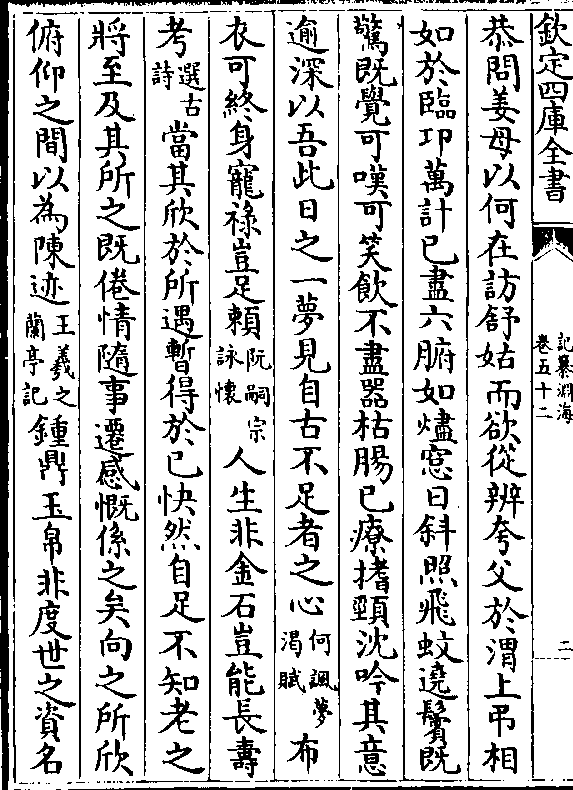 欽定四庫全書
記纂淵海
卷五十二
二
恭問姜母以何在訪舒姑而欲從辨夸父於渭上弔相
如於臨卭萬計已盡六腑如燼窓日斜照飛蚊遶鬢既
驚既覺可嘆可笑飲不盡器枯腸已療搘頤沈吟其意
逾深以吾此日之一夢見自古不足者之心何諷夢渴賦布
衣可終身寵祿豈足賴阮嗣宗詠懷人生非金石豈能長壽
考選古詩當其欣於所遇暫得於已快然自足不知老之
將至及其所之既倦情隨事遷感慨係之矣向之所欣
俯仰之間以為陳迹王羲之蘭亭記鍾鼎玉帛非度世之資名